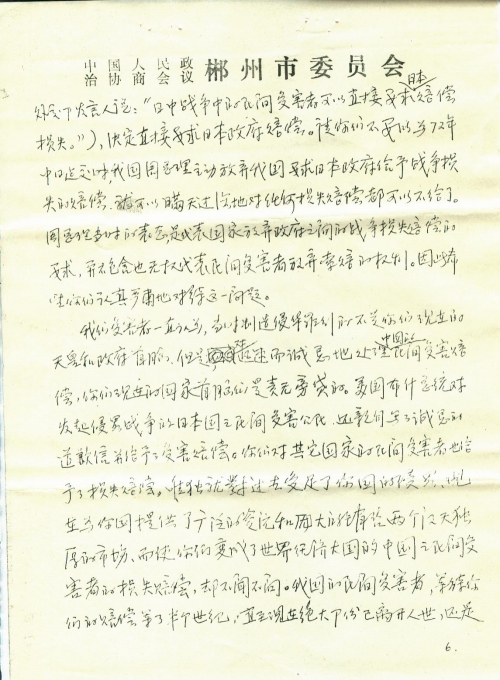 中国人民政
治协商会议 郴州市委员会
外交部发言人说："日中战争中的民间受害者可以直接要求日本赔偿
损失。"），决定直接要求日本政府赔偿。请你们不要以为72年
中日建交时我国周总理主动放弃代国要求日本政府给予战争损
失的赔偿，就可以瞒天过海地对任何损失赔偿都可以不给了。
周总理当时的表态是代表国家放弃政府之间的战争损失赔偿的
要求，并不包含也无权代表民间受害者放弃索赔的权利。因此希
望你们认真严肃地对待这一问题。
我们受害者一直认为，当时制造侵华罪行的不是你们现在的
天皇和政府首脑，但是迅速而诚恳地处理中国的民间受害赔
偿，你们现在的国家首脑们是责无旁贷的。美国布什总统对
发起侵略战争的日本国之民间受害公民，还亲自写了诚恳的
道歉信并给予了受害赔偿。你们对其它国家的民间受害者也给
予了损失赔偿。唯独就对过去受尽了你国的，现
在为你国提供了广泛的资源和两大的两个得天独
厚的市场，而使你们变成了世界经济大国的中国之民间受
害者的损失赔偿，却不闻不问。我国的民间受害者，等待你
们的赔偿等了半个世纪，直至现在绝大部份已离开人世，还是
6.